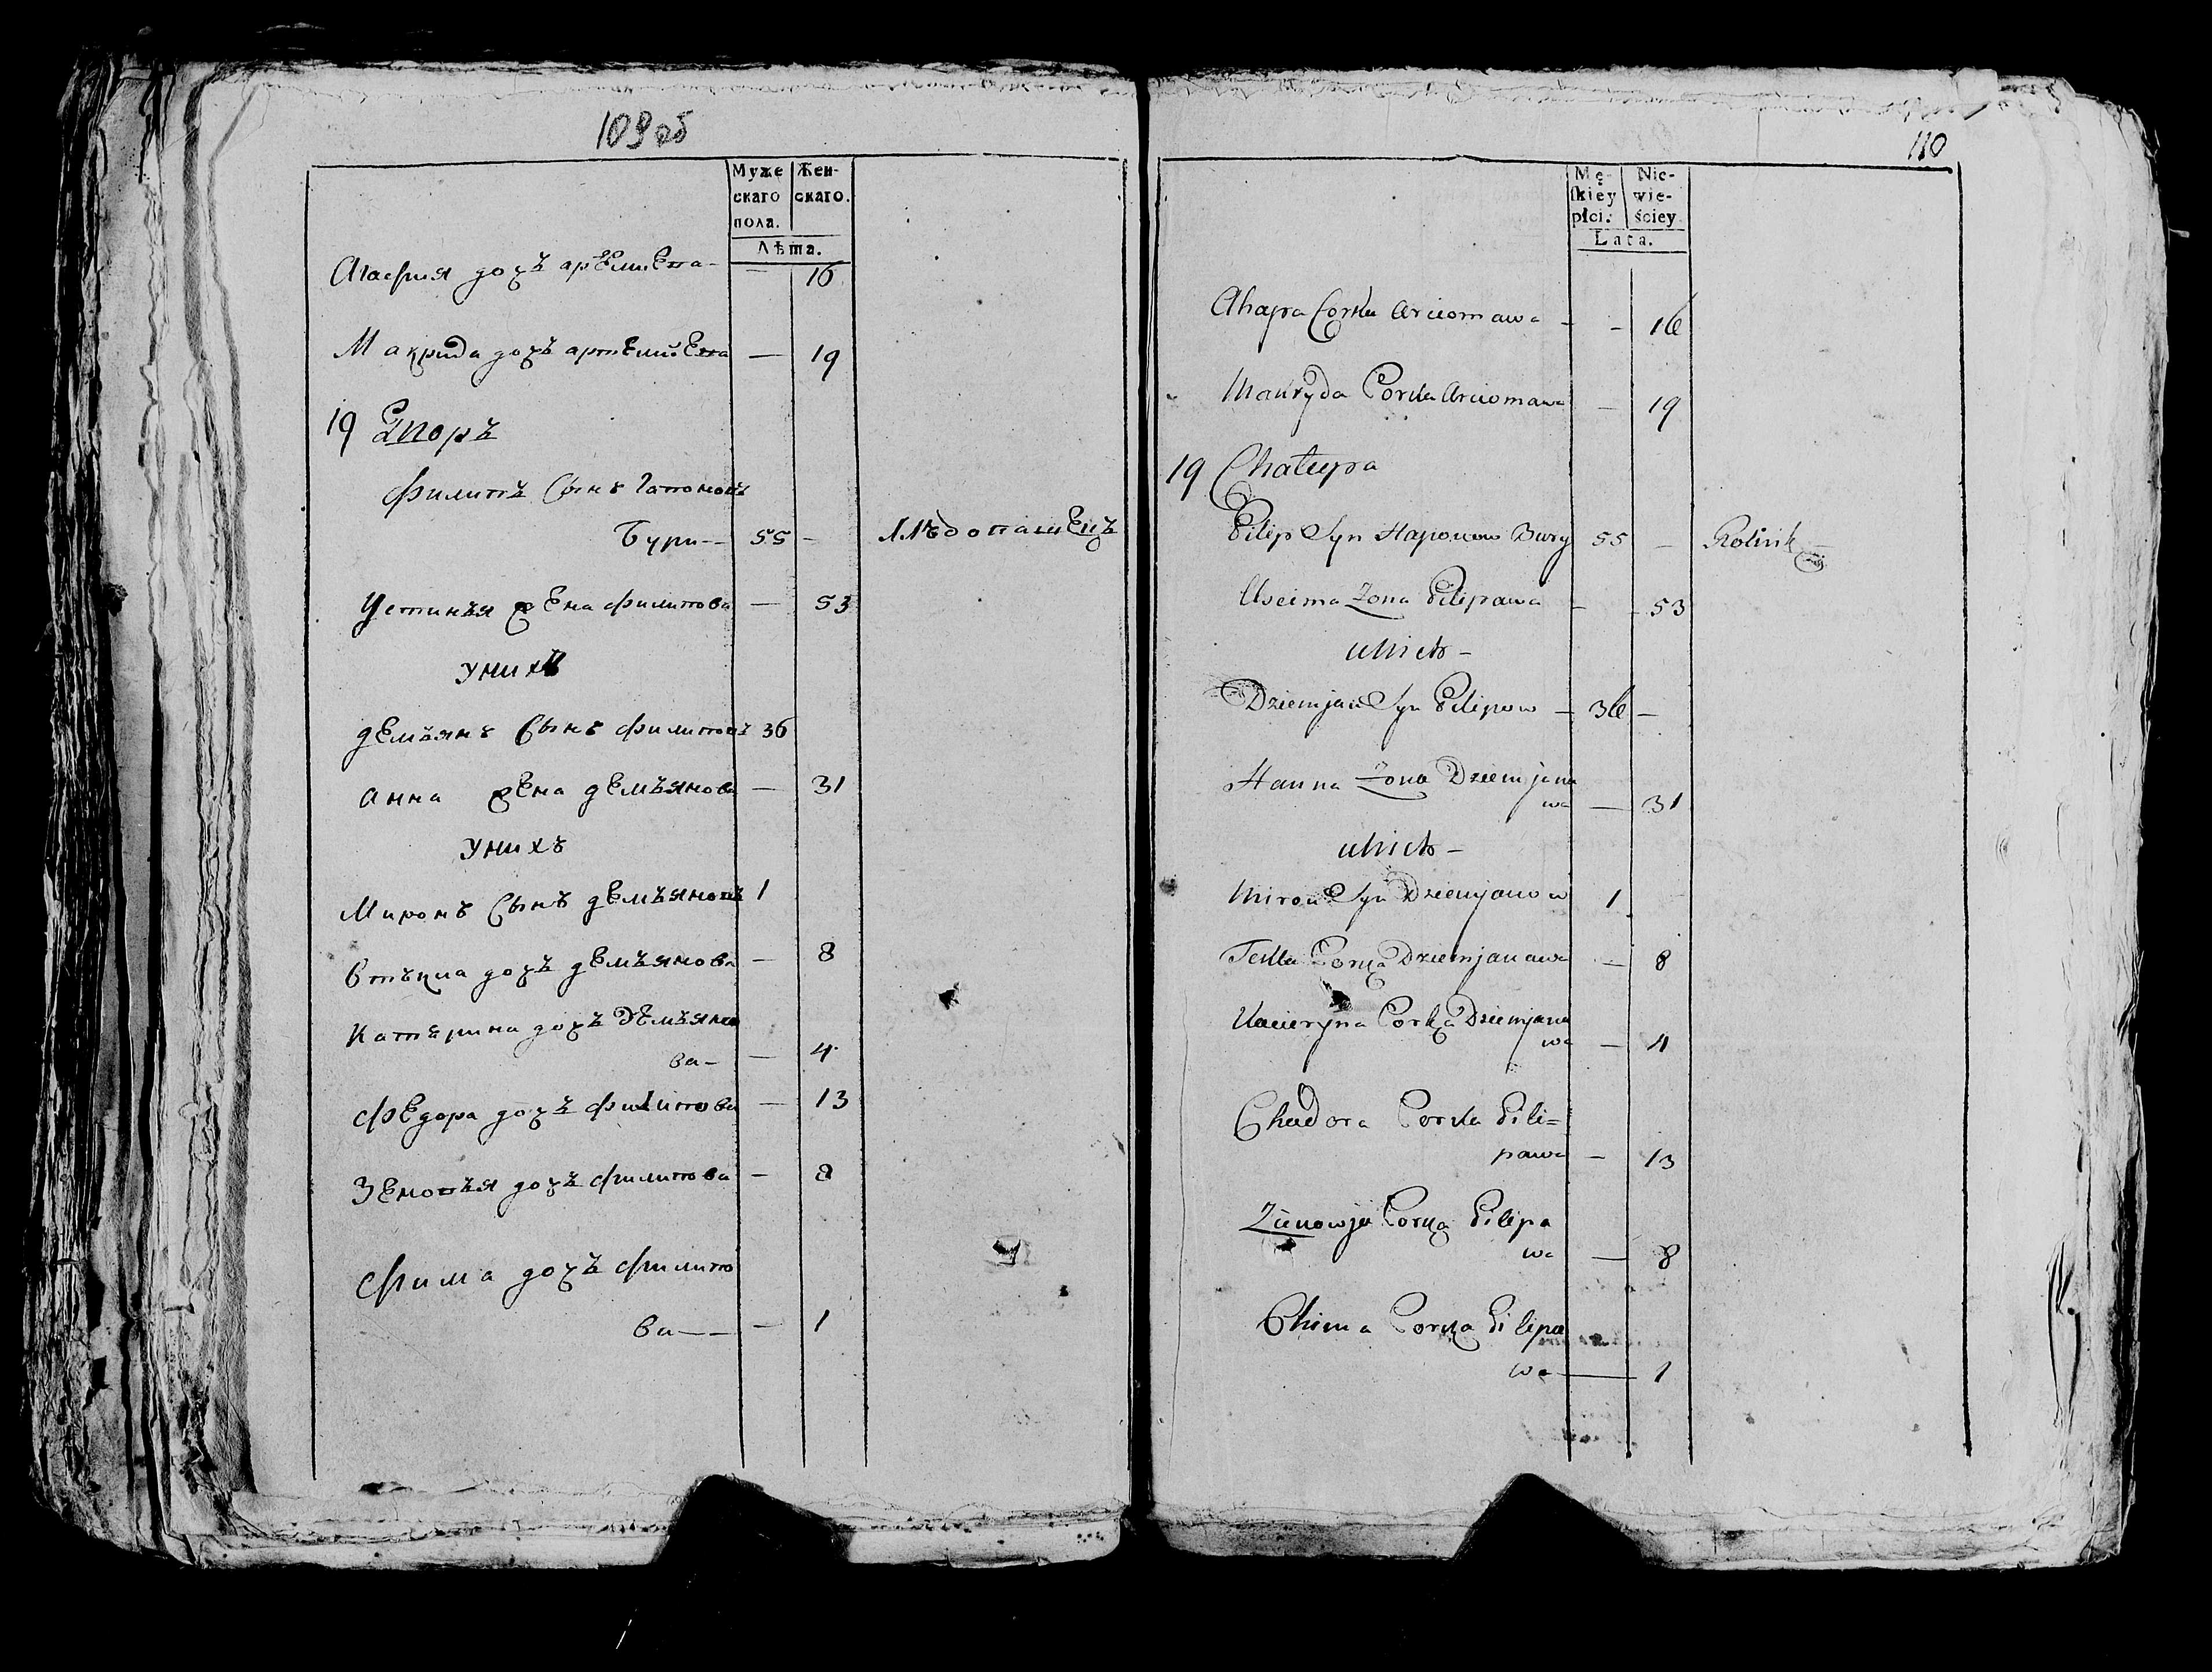 109об
Муже
скаго
пола.
Жен-
скаго.
Лѣта.
Агафия дочъ — 16
Макрида дочъ — 19
19 Дворъ
Филипъ Сынъ Гапоновъ
Бури -- 55 -
Устинья жена Филипова — 53
У нихъ
Демъянъ Сынъ Филиповъ 36
Анна жена Демъянова — 31
У нихъ
Миронъ Сынъ Демъяновъ 1
дочъ Демъянова — 8
Катерина дочъ Демъяно
ва - — 4
Федора дочъ Филипова — 13
Зеновъя дочъ Филипова — 8
Фима дочъ Филипо
ва -- — 1
110
Mę-
skiey
płci.
Nie-
wie-
ściey
Lata.
Ahapa Corka Arciomawa - - 16
Makryda Corka Arciomawa - 19
19 Chałupa
Pilip Syn Haponow Bury 55 - Rolnik
Uscima Zona Pilipawa - - 53
U nich -
Dziemjan Syn Pilipow - 36 -
Hanna Zona Dziemjana
wa — 31
U nich -
Miron Syn Dziemjanow 1
Tekla Corka Dziemjanawa — 8
Kacieryna Corka Dziemjana
wa — 4
Chadora Corka Pili=
pawa - 13
Zienowja Corka Pilipa
wa — 8
Chima Corka Pilipa
wa — 1